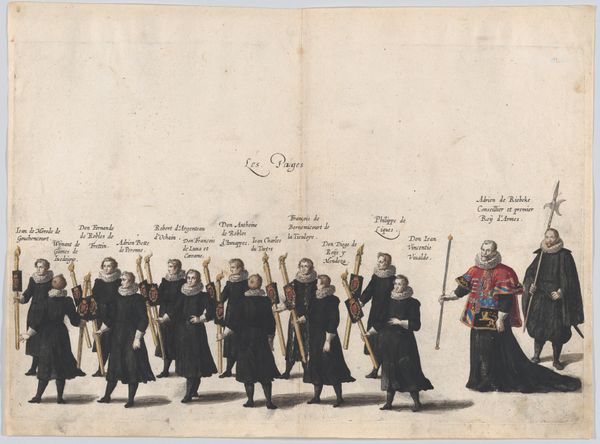 Les Pages
Jean de Merode de
Wynant de
Glimes de
Don Fernande
de Robles de
Adrien Bette
de Peronne.
Robert d'Argenteau
d'Ochain.
Don François
de Luna et
Carcame.
Don Anthoine
de Robles
Jean Charles
du Tietre
François de
Bernemicourt de
la Tieuloye.
Don Diego de
Roys y
Mendoza.
Philippe de
Lignes.
Don Jean
Vincentio
Vivaldo.
Adrien de Riebeke
Conseillier et premier
Roÿ d'Armes.